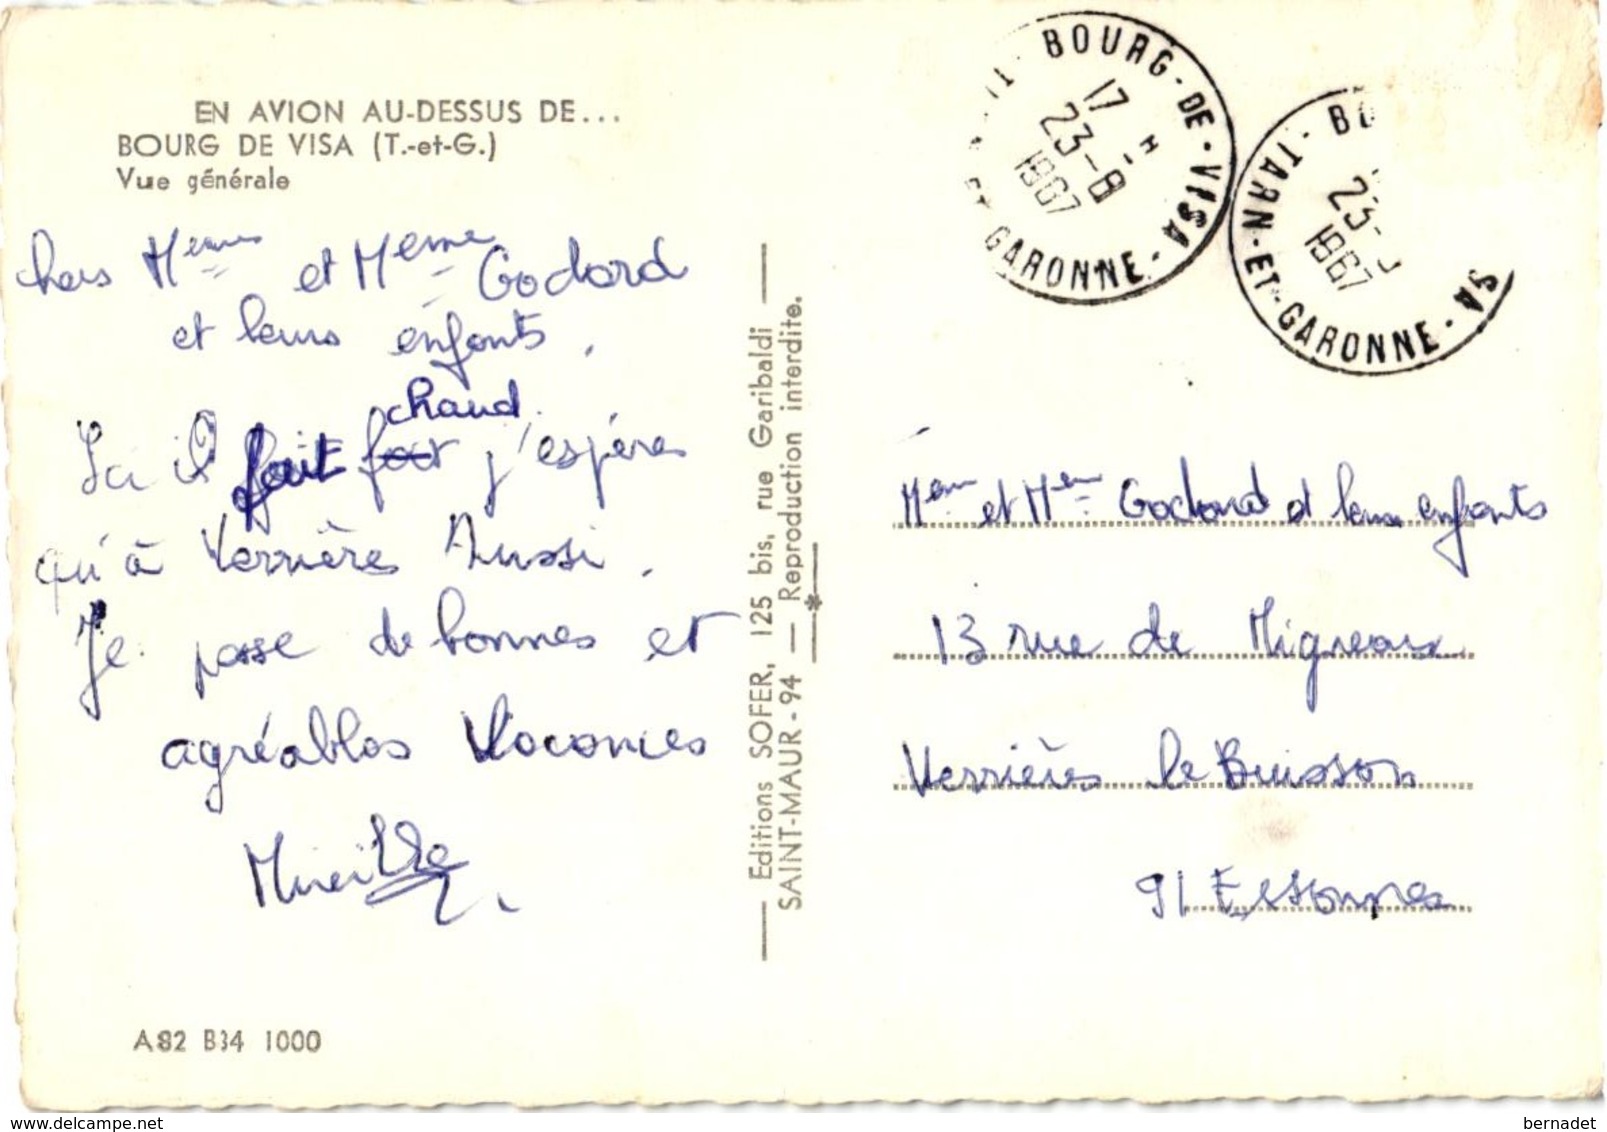 EN AVION AU-DESSUS DE...
BOURG DE VISA (T.-et-G.)
Vue générale
chers Memes et Meme Godard
et leurs enfants,
chaud.
Ici il fait j'espères
qu'à Verrière Aussi.
Je passe de bonnes et
agréables Vacances
Mireille
A82 B34 1000
Editions SOFER, 125 bis, rue Garibaldi
SAINT-MAUR - 94 — Reproduction interdite.
BOURG-DE-VISA
17 H
23-8
1967
ET GARONNE
BO
23-
1967
SA
TARN-ET-GARONNE
Mem et Mem Godard et leurs enfants
13 rue de Migneaux
Verrières le Buisson
91 Essonnes
bernadet